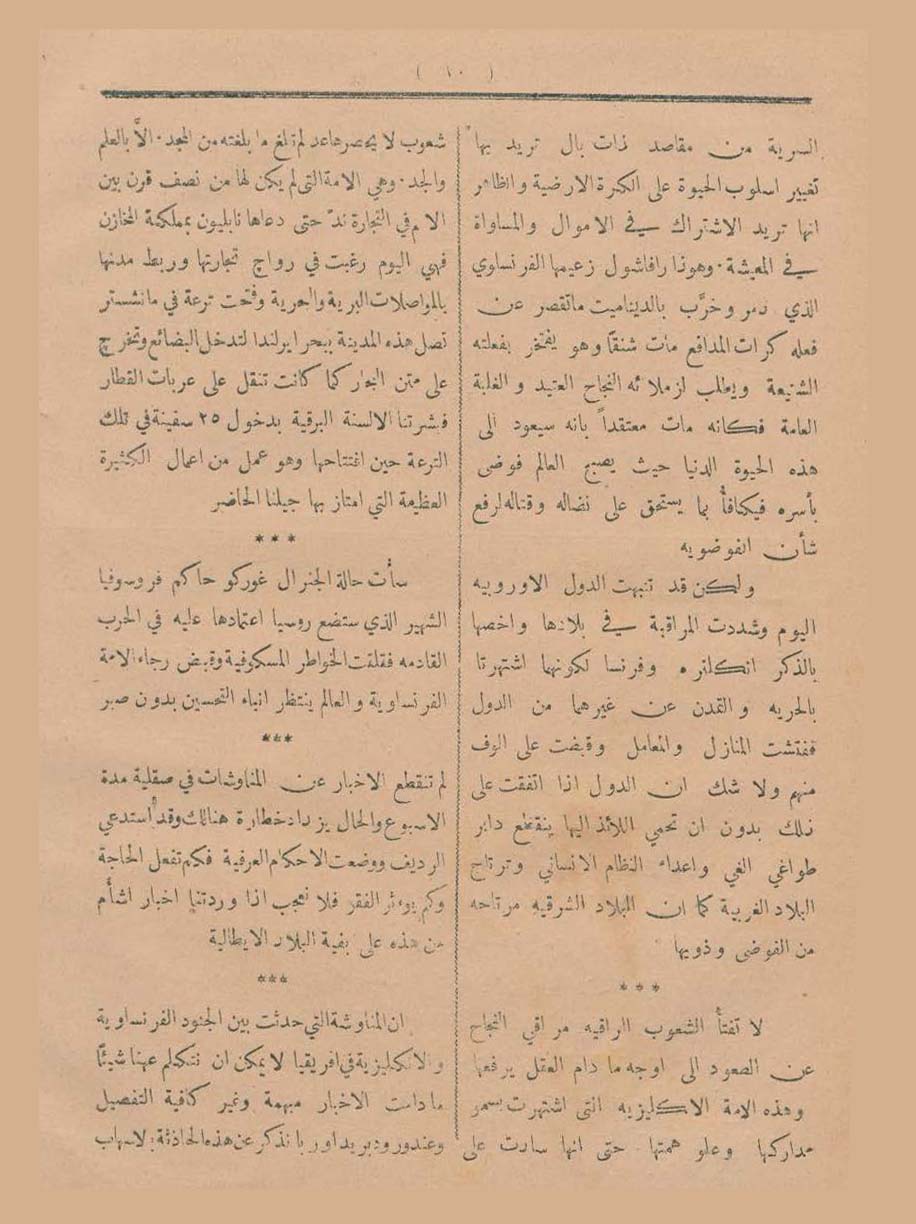 ( ١٠ )
السرية من مقاصد ذات بال تريد بها
تغيير اسلوب الحيوة على الكرة الارضية والظاهر
انها تريد الاشتراك في الاموال والمساواة
في المعيشة . وهوذا رافاشول زعيمها الفرنساوي
الذي دمر وخرَّب بالديناميت ماتقصر عن
فعله كرات المدافع مات شنقًا وهو يفتخر بفعلته
الشنيعة ويطلب لزملائه النجاح العتيد والغلبة
العامة فكانه مات معتقداً بانه سيعود الى
هذه الحيوة الدنيا حيث يصبح العالم فوضى
بأسره فيكافأ بما يستحق على نضاله وقتاله لرفع
شأن الفوضويه
ولكن قد تنبهت الدول الاوروبيه
اليوم وشددت المراقبة في بلادها واخصها
بالذكر انكلتره وفرنسا لكونهما اشتهرتا
بالحريه والتمدن عن غيرهما من الدول
ففتشت المنازل والمعامل وقبضت على الوف
منهم ولا شك ان الدول اذا اتفقت على
ذلك بدون ان تحمي اللائذ اليها ينقطع دابر
طواغي الغي واعداء النظام الانساني وترتاح
البلاد الغربية كما ان البلاد الشرقيه مرتاحه
من الفوضى وذويها
***
لا تفتأُ الشعوب الراقيه مراقي النجاح
عن الصعود الى اوجه ما دام العقل يرفعها
وهذه الامة الانكليزيه التى اشتهرت بسمو
مداركها وعلو همتها حتى انها سادت على
شعوب لا يحصرها عد لم تلغ ما بلغته من المجد . الاَّ بالعلم
والجد . وهي الامة التى لم يكن لها من نصف قرن بين
الامم في التجارة ندّ حتى دعاها نابليون بمملكة المخازن
فهي اليوم رغبت في رواج تجارتها وربط مدنها
بالمواصلات البرية والبحرية وفتحت ترعة في مانشستر
تصل هذه المدينة ببحر ايرلندا لتدخل البضائع وتخرج
على متن البحار كما كانت تنقل على عربات القطار
فبشرتنا الالسنة البرقية بدخول ٢٥ سفينة في تلك
الترعة حين افتتاحها وهو عمل من اعمال الكثيرة
العظيمة التي امتاز بها جيلنا الحاضر
***
سأت حالة الجنرال غوركو حاكم فرسوفيا
الشهير الذي ستضع روسيا اعتمادها عليه في الحرب
القادمه فقلقت الخواطر المسكوفية وقبض رجاء الامة
الفرنساوية والعالم ينتظر انباء التحسين بدون صبر
***
لم تنقطع الاخبار عن المناوشات في صقلية مدة
الاسبوع والحال يزداد خطارة هنالك وقد استدعي
الرديف ووضعت الاحكام العرفية فكم تفعل الحاجة
وكم يوءثر الفقر فلا نعجب اذا وردتنا اخبار اشأم
من هذه على بقية البلاد الايطالية
***
ان المناوشة التي حدثت بين الجنود الفرنساوية
والانكليزية في افريقيا لا يمكن ان نتكلم عنها شيئًا
مادامت الاخبار مبهمة وغير كافية التفصيل
وعند ورود بريد اوربا نذكر عن هذه الحادثة بلاسهاب